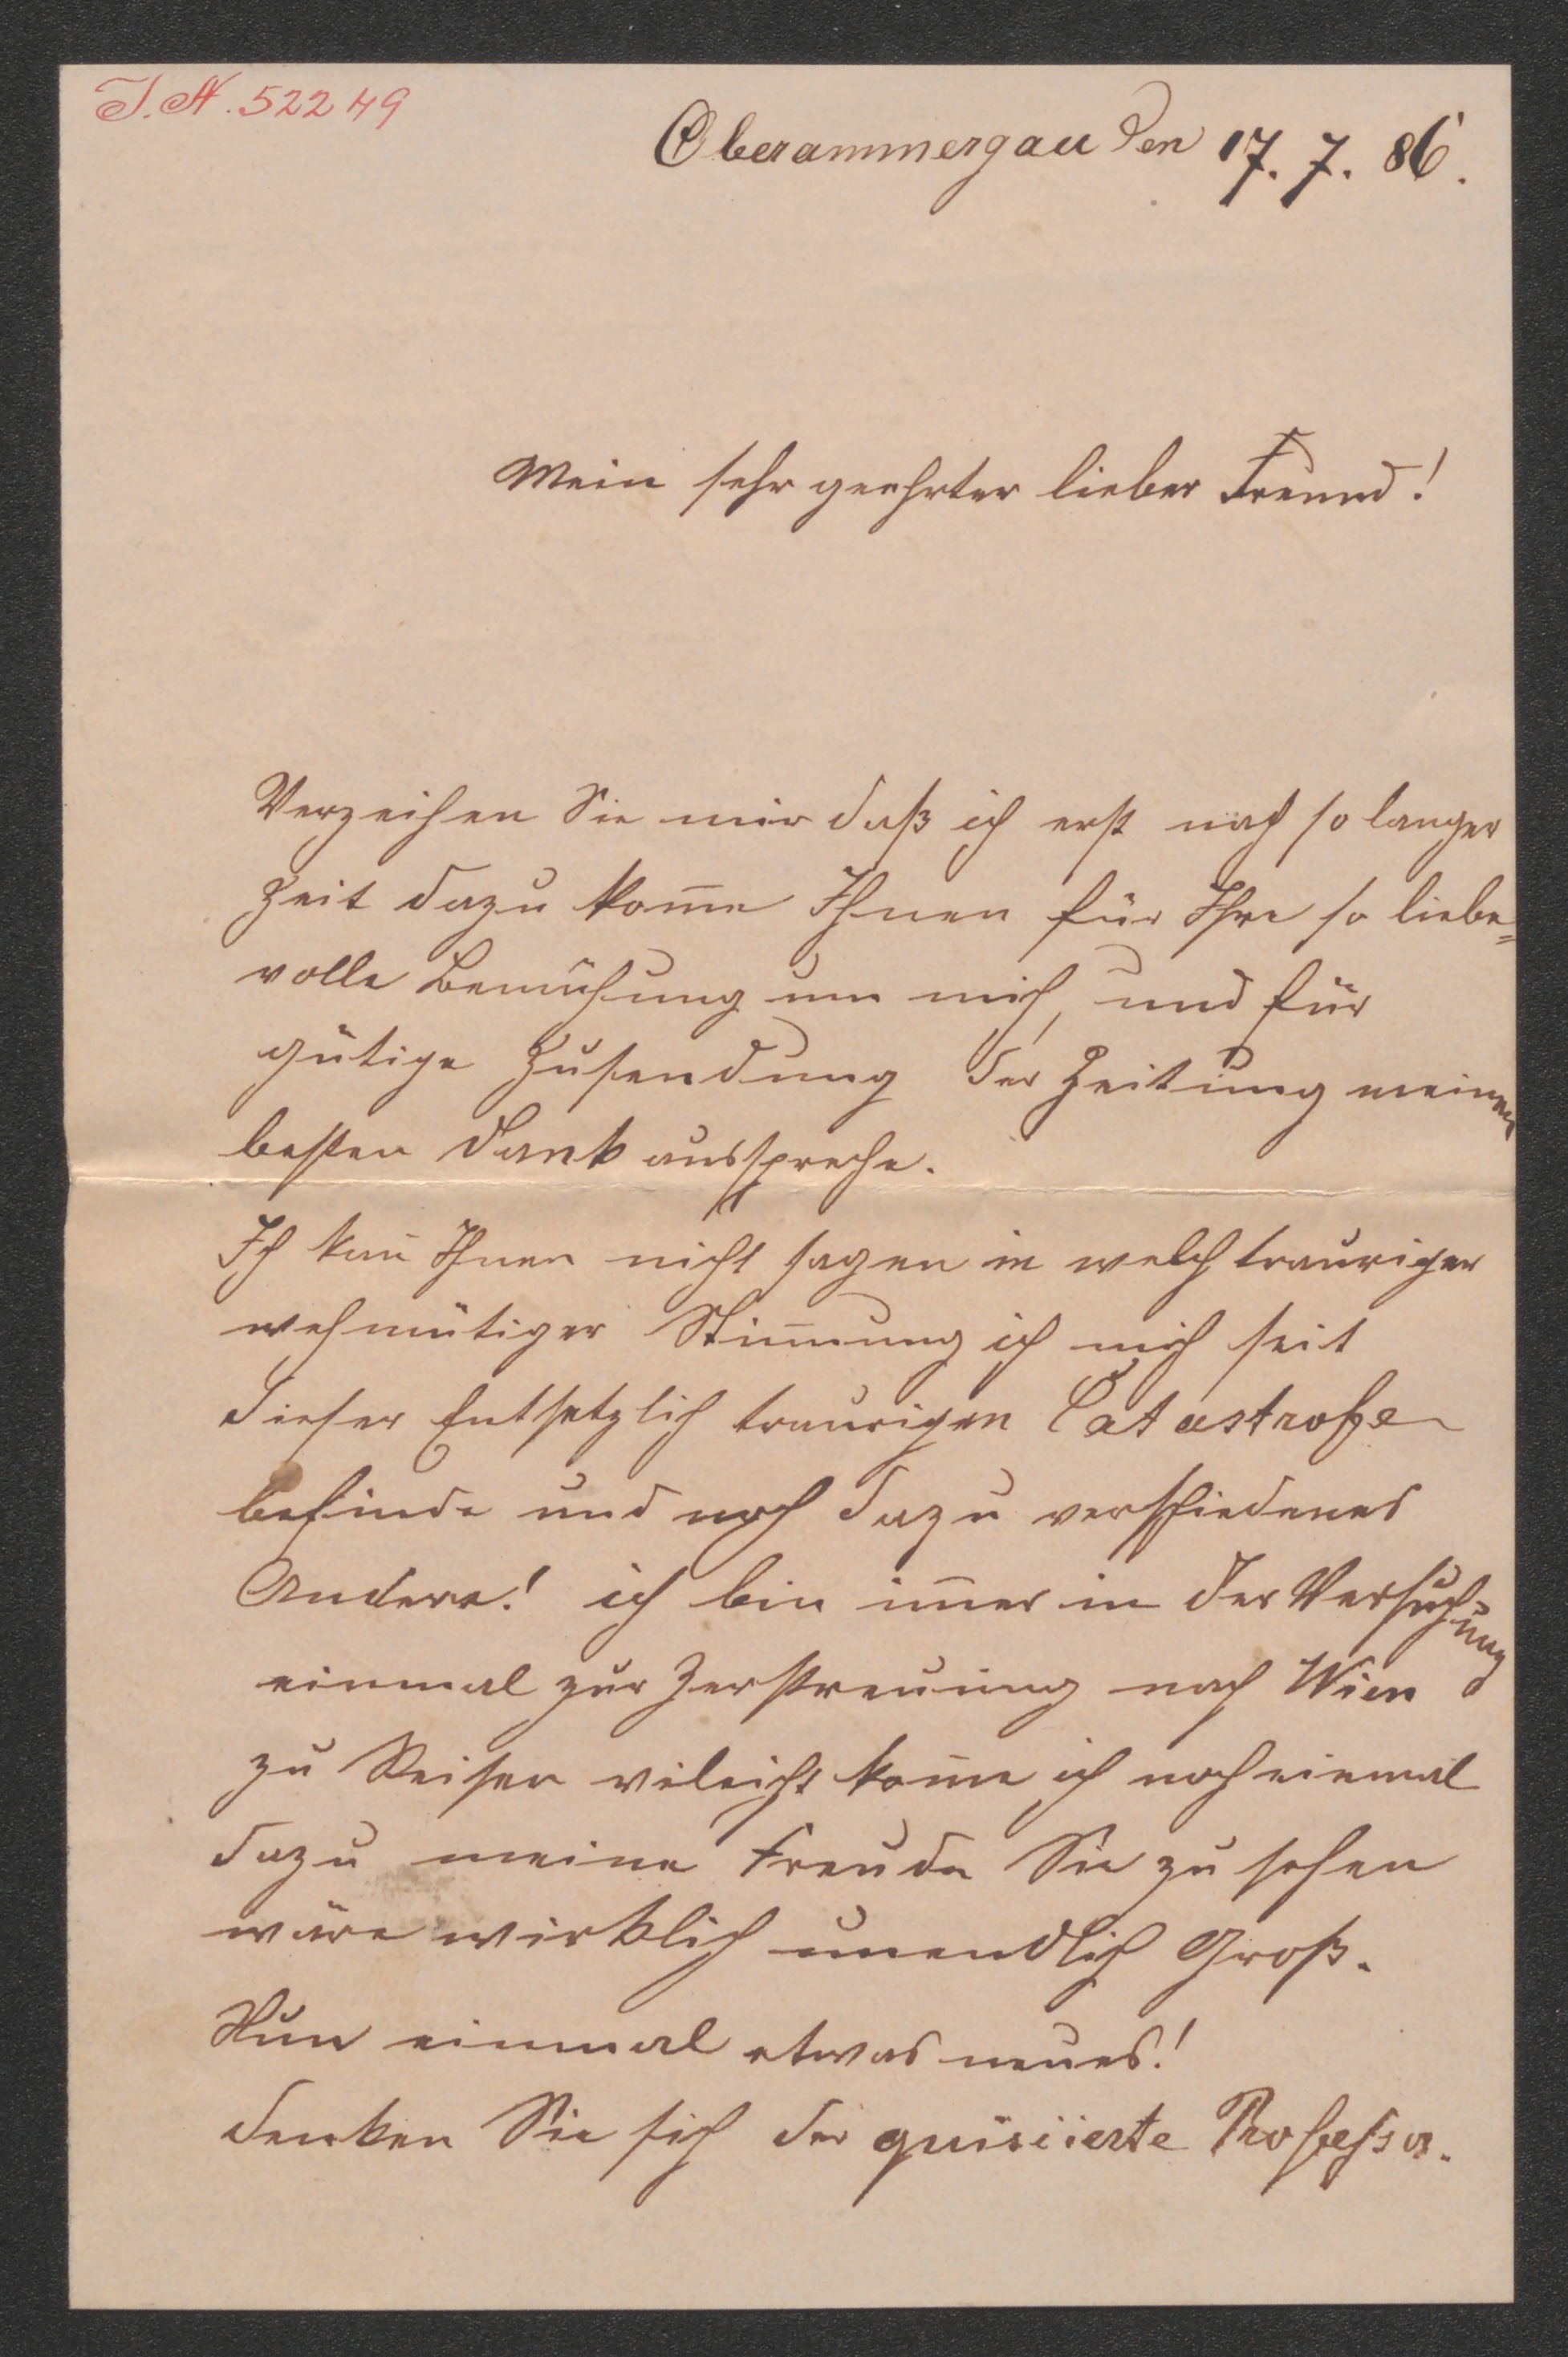 I.N. 52249
Oberammergau den 17. 7. 86.
Mein sehr geehrter lieber Freund!
Verzeihen Sie mir daß ich erst nach so langer
Zeit dazu kom̅e Ihnen für Ihre so liebe=
volle Bemühung um mich, und für
gütige Zusendung der Zeitung meinen
besten Dank ausspreche.
Ich kan̅ Ihnen nicht sagen in welch trauriger
wehmütiger Stim̅ung ich mich seit
dieser Entsetzlich traurigen Catastrofe
befinde und noch dazu verschiedenes
Andere! ich bin im̅er in der Versuchung
einmal zur Zerstreuung nach Wien
zu Reisen vileicht kom̅e ich noch einmal
dazu meine Freude Sie zu sehen
wäre wirklich unendlich Groß.
Nun einmal etwas neues!
denken Sie sich der quisiierte Professor.